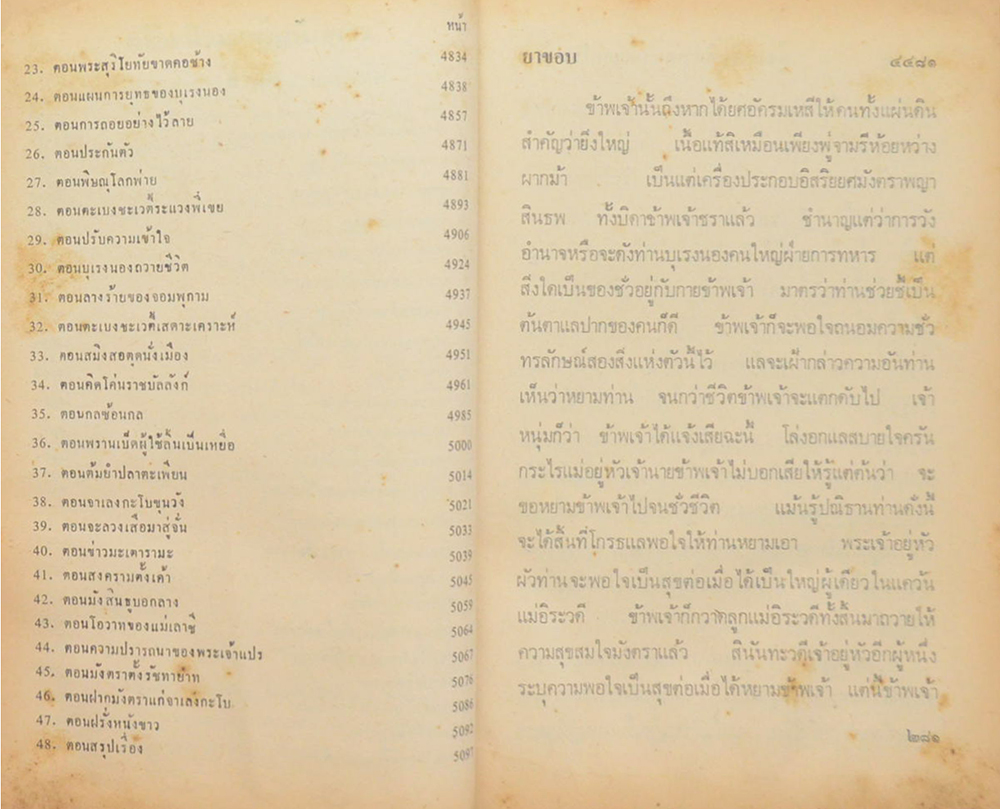 หน้า
23. ตอนพระสุริโยทัยขาดคอช้าง 4834
24. ตอนแผนการยุทธของบุเรงนอง 4838
25. ตอนการถอยอย่างไว้ลาย 4857
26. ตอนประกันตัว 4871
27. ตอนพิษณุโลกพ่าย 4881
28. ตอนตะเบงชะเวตี้ระแวงพี่เขย 4893
29. ตอนปรับความเข้าใจ 4906
30. ตอนบุเรงนองถวายชีวิต 4924
31. ตอนลางร้ายของจอมพุกาม 4937
32. ตอนตะเบงชะเวตี้เสตาะเคราะห์ 4945
33. ตอนสมิงสอตุดนั่งเมือง 4951
34. ตอนคิดโค่นราชบัลลังก์ 4961
35. ตอนกลซ้อนกล 4985
36. ตอนพรานเบ็ดผู้ใช้ลิ้นเป็นเหยื่อ 5000
37. ตอนต้มยำปลาตะเพียน 5014
38. ตอนจาเลงกะโบขุนวัง 5021
39. ตอนจะลวงเสือมาสู่จั่น 5033
40. ตอนข่าวมะเตารามะ 5039
41. ตอนสงครามตั้งเค้า 5045
42. ตอนมังสินธูบอกลาง 5059
43. ตอนโอวาทของแม่เลาชี 5064
44. ตอนความปรารถนาของพระเจ้าแปร 5067
45. ตอนมังตราตั้งรัชทายาท 5076
46. ตอนฝากมังตราแก่จาเลงกะโบ 5086
47. ตอนฝรั่งหนังขาว 5092
48. ตอนสรุปเรื่อง 5097
ยาขอบ ๔๔๘๑
ข้าพเจ้านั้นถึงหากได้ยศอัครมเหสีให้คนทั้งแผ่นดิน
สำคัญว่ายิ่งใหญ่ เนื้อแท้สิเหมือนเพียงพู่จามรีห้อยหว่าง
ผากม้า เป็นแต่เครื่องประกอบอิสริยยศมังตราพญา
สินธพ ทั้งบิดาข้าพเจ้าชราแล้ว ชำนาญแต่ว่าการวัง
อำนาจหรือจะดังท่านบุเรงนองคนใหญ่ฝ่ายการทหาร แต่
สิ่งใดเป็นของชั่วอยู่กับกายข้าพเจ้า มาตรว่าท่านช่วยชี้เป็น
ต้นตาแลปากของคนก็ดี ข้าพเจ้าก็จะพอใจถนอมความชั่ว
ทรลักษณ์สองสิ่งแห่งตัวนี้ไว้ แลจะเฝ้ากล่าวความอันท่าน
เห็นว่าหยามท่าน จนกว่าชีวิตข้าพเจ้าจะแตกดับไป เจ้า
หนุ่มก็ว่า ข้าพเจ้าได้แจ้งเสียฉะนี้ โล่งอกแลสบายใจครัน
กระไรแม่อยู่หัวเจ้านายข้าพเจ้าไม่บอกเสียให้รู้แต่ต้นว่า จะ
ขอหยามข้าพเจ้าไปจนชั่วชีวิต แม้นรู้ปณิธานท่านดั่งนี้
จะได้สิ้นที่โกรธแลพอใจให้ท่านหยามเอา พระเจ้าอยู่หัว
ผัวท่านจะพอใจเป็นสุขต่อเมื่อได้เป็นใหญ่ผู้เดียวในแคว้น
แม่อิระวดี ข้าพเจ้าก็กวาดลูกแม่อิระวดีทั้งสิ้นมาถวายให้
ความสุขสมใจมังตราแล้ว สินันทะวดีเจ้าอยู่หัวอีกผู้หนึ่ง
ระบุความพอใจเป็นสุขต่อเมื่อได้หยามข้าพเจ้า แต่นี้ข้าพเจ้า
๒๘๑